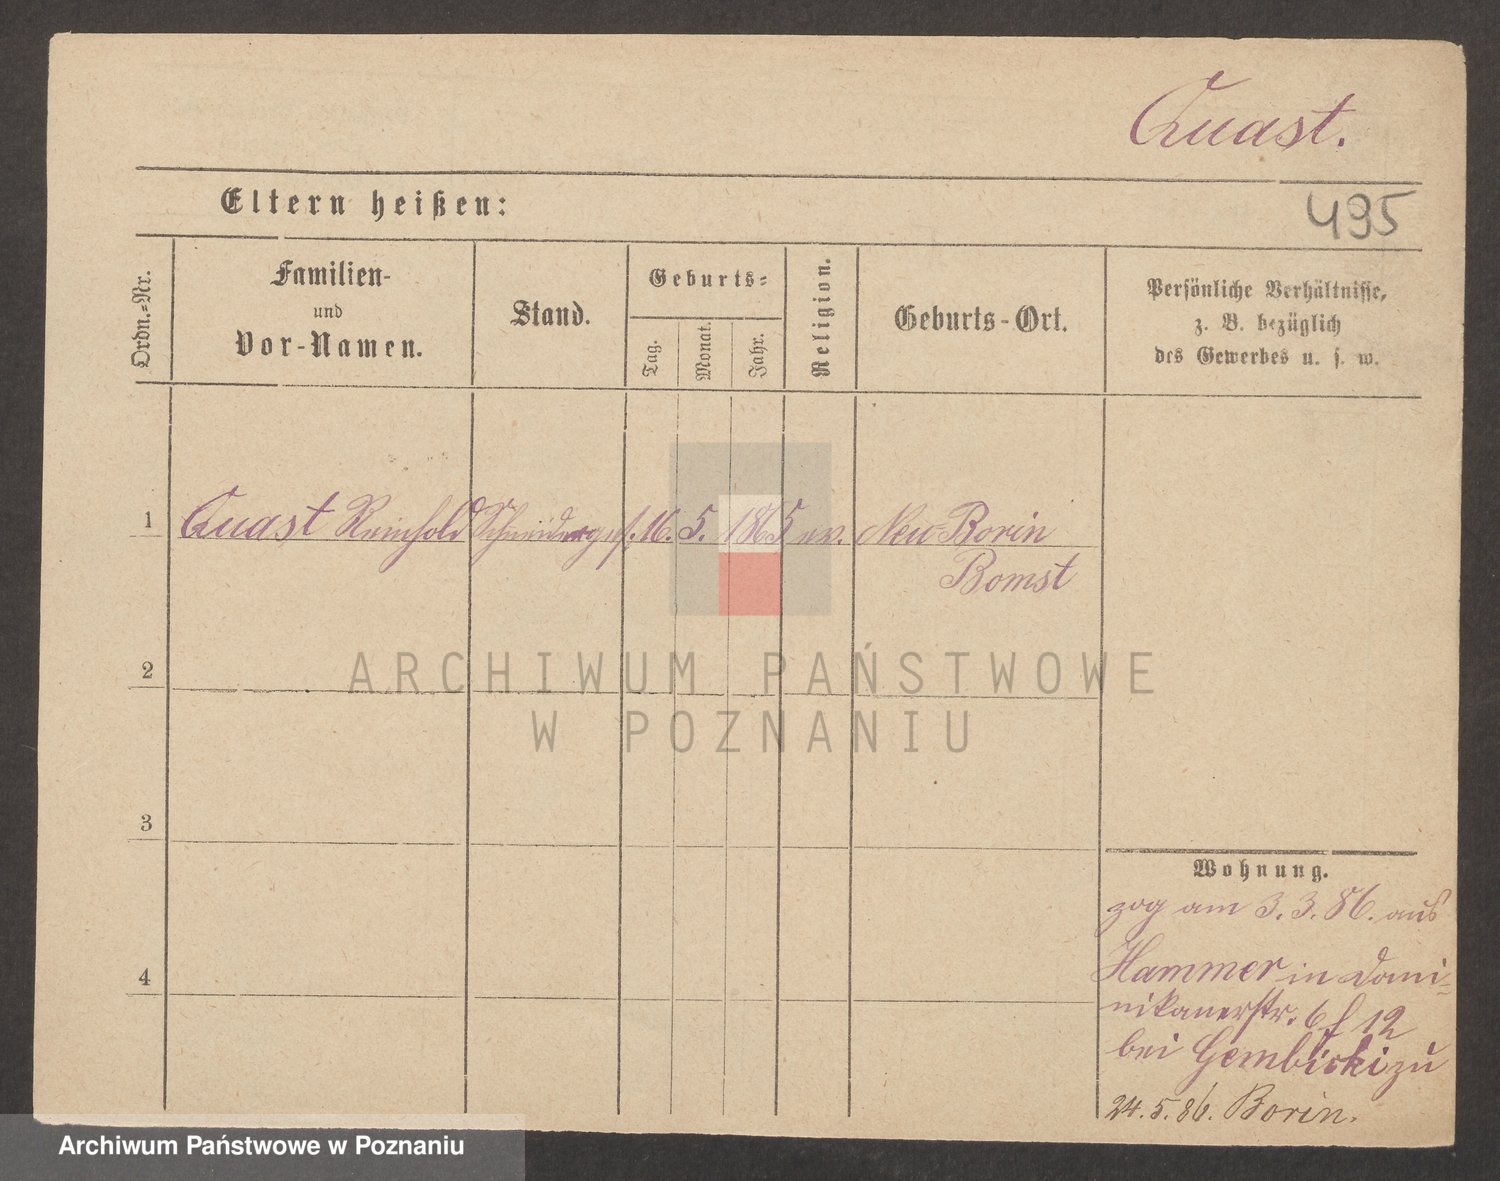 Quast.
Eltern heißen:
495
Ordn.-Nr.
Familien-
und
Vor-Namen.
Stand.
Geburts-
Tag.
Monat.
Jahr.
Religion.
Geburts-Ort.
Persönliche Verhältnisse,
z. B. bezüglich
des Gewerbes u. s. w.
1 Quast Reinhold Schneiderges. 16. 5. 1865 ev. Neu Borin
Bomst
ARCHIWUM PAŃSTWOWE
W POZNANIU
2
3
4
Wohnung.
zog am 3. 3. 86. aus
Hammer in Domi-
nikanerstr. 6 f 12
bei Gembicki zu
24. 5. 86. Borin.
Archiwum Państwowe w Poznaniu